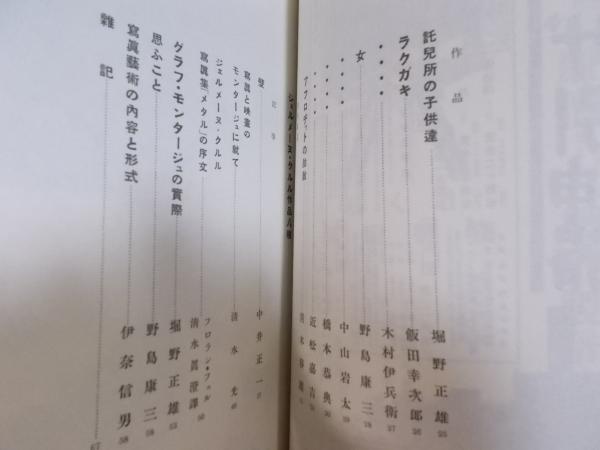 作品
託兒所の子供達 堀野正雄 25
ラクガキ 飯田幸次郎 26
・・・・ 木村伊兵衛 27
女 野島康三 28
・・・・ 中山岩太
・・・・ 橋本恭典
・・・・ 近松嘉吉
アフロディトの
ジェルメーヌ・クルル作品八種
記事
壁 中井正一
寫眞と映畫の
モンタージュに就て 清水光
ジェルメーヌ・クルル
寫眞集「メタル」の序文 フロラン・フェル
清水眞澄譯 50
グラフ・モンタージュの實際 堀野正雄
思ふこと 野島康三
寫眞藝術の内容と形式 伊奈信男 58
雜記